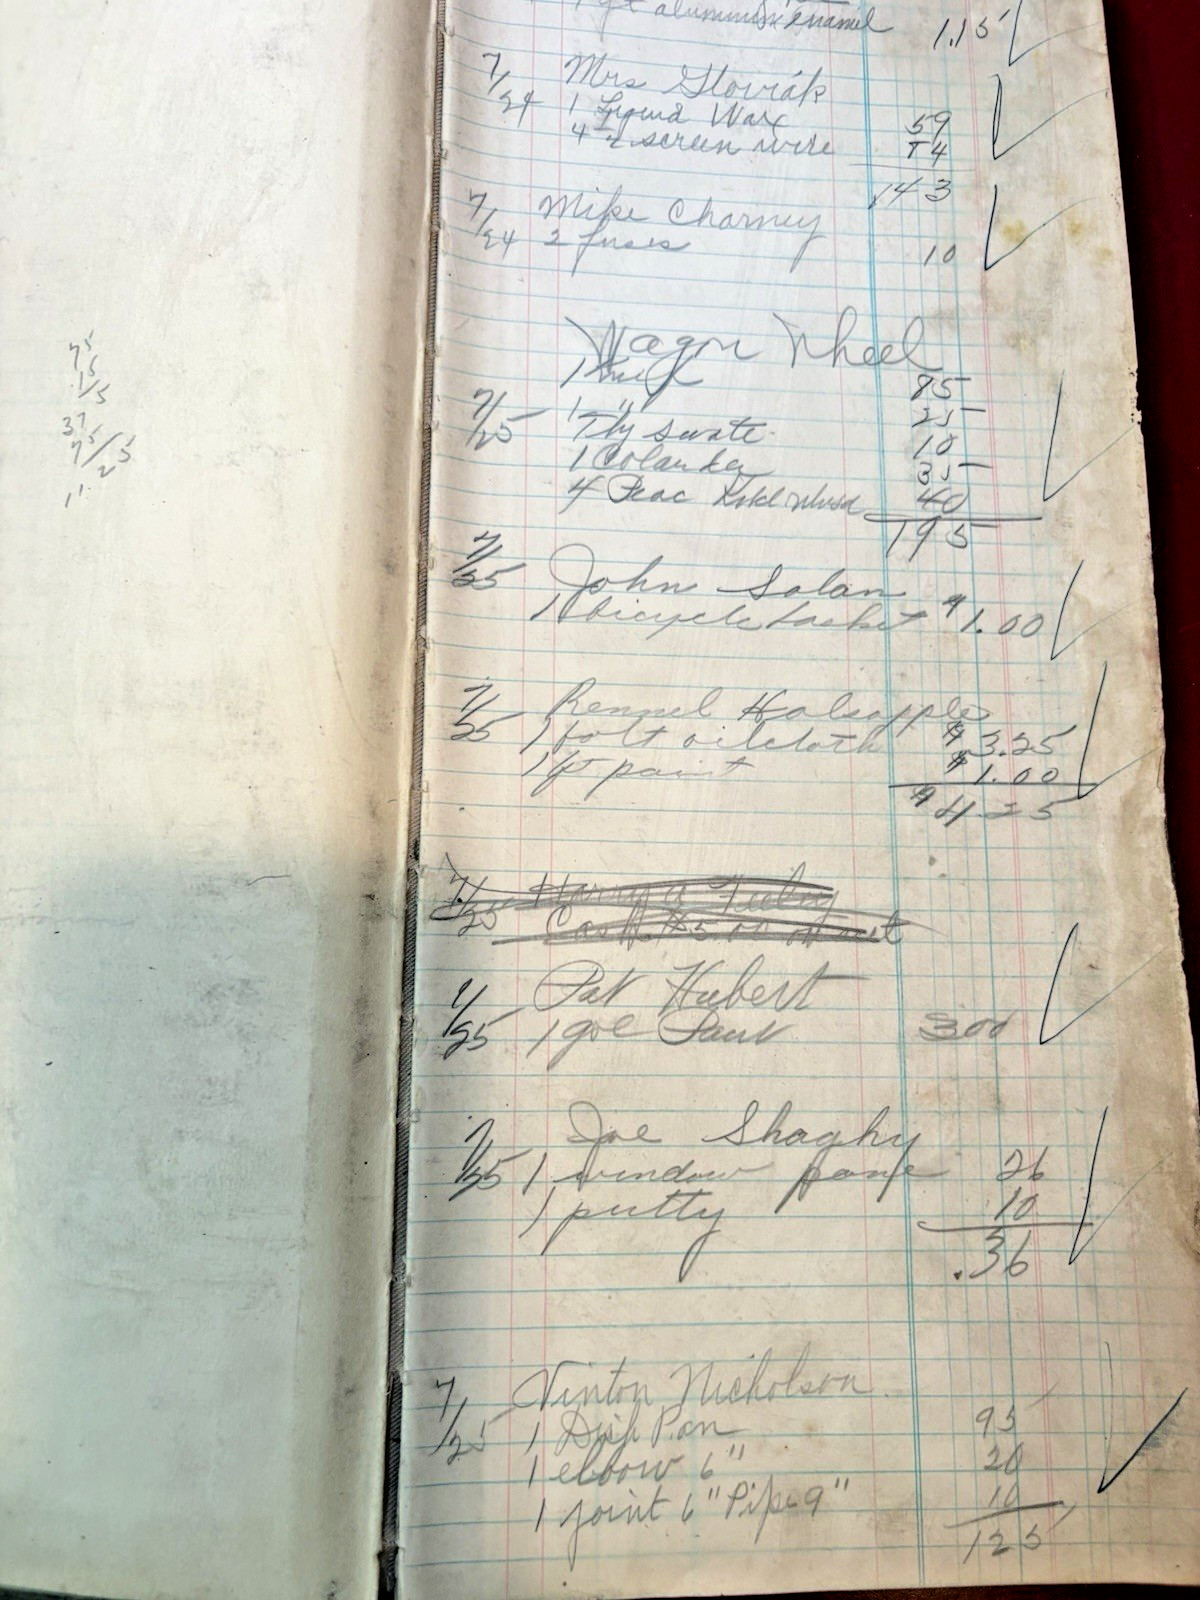 75
15
1/5
37
75/25
11.2
aluminum enamel 1.15
7/24 Mrs Slovick
1 Liquid Wax 59
4 screen wire 84
1.43
7/24 Mike Charney
2 fuses 10
Wagon Wheel
1 85
7/25 1 " 25
1 Fly swate 10
1 Colander 35
4 40
195
7/25 John Solan
1 bicycle basket $1.00
7/25 Rennel Holsopple
1 bolt oilcloth $3.25
1 qt paint $1.00
$4.25
7/25 Harry a
Cash $5.00
7/25 Pat Hubert
1 gal Paint 300
7/25 Joe Shaghy
1 window pane 26
1 putty 10
.36
7/25 Vinton Nicholson
1 Dish Pan 95
1 elbow 6" 20
1 joint 6" Pipe 9" 10
125